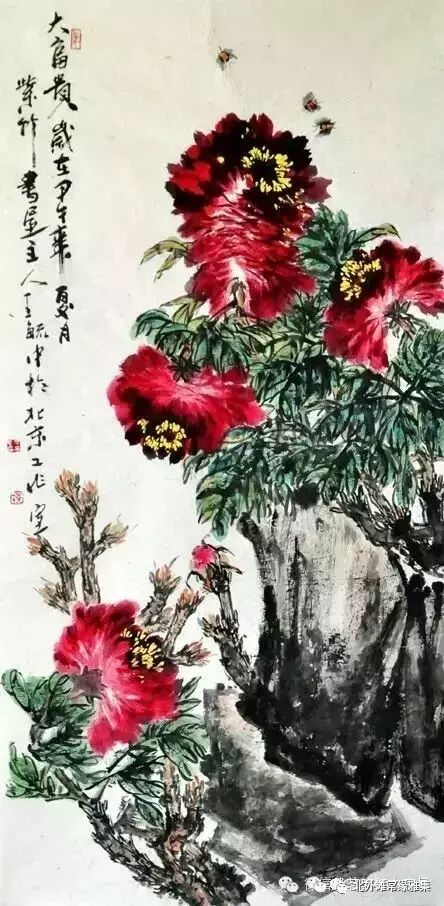 大富貴 歲在甲午年夏月
紫竹書屋主人王毓中於北京工作室